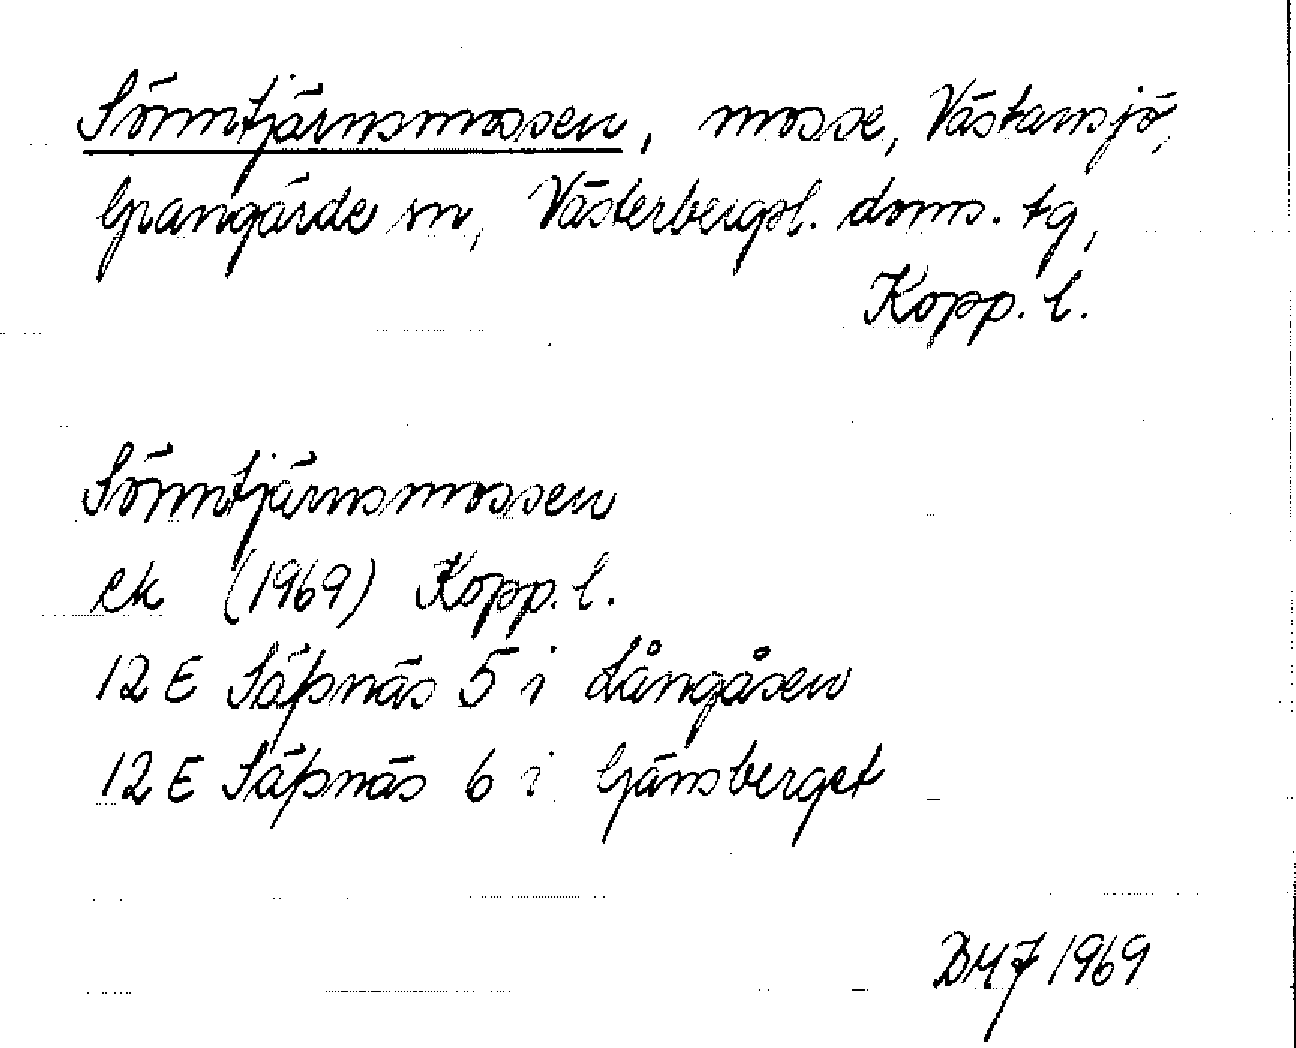 Sönntjärnsmossen, mosse, Västansjö,
Grangärde sn, Västerbergsl. doms. tg,
Kopp. l.
Sönntjärnsmossen
ek (1969) Kopp. l.
12 E Säfsnäs 5 i Långåsen
12 E Säfsnäs 6 i Gänsberget
1969